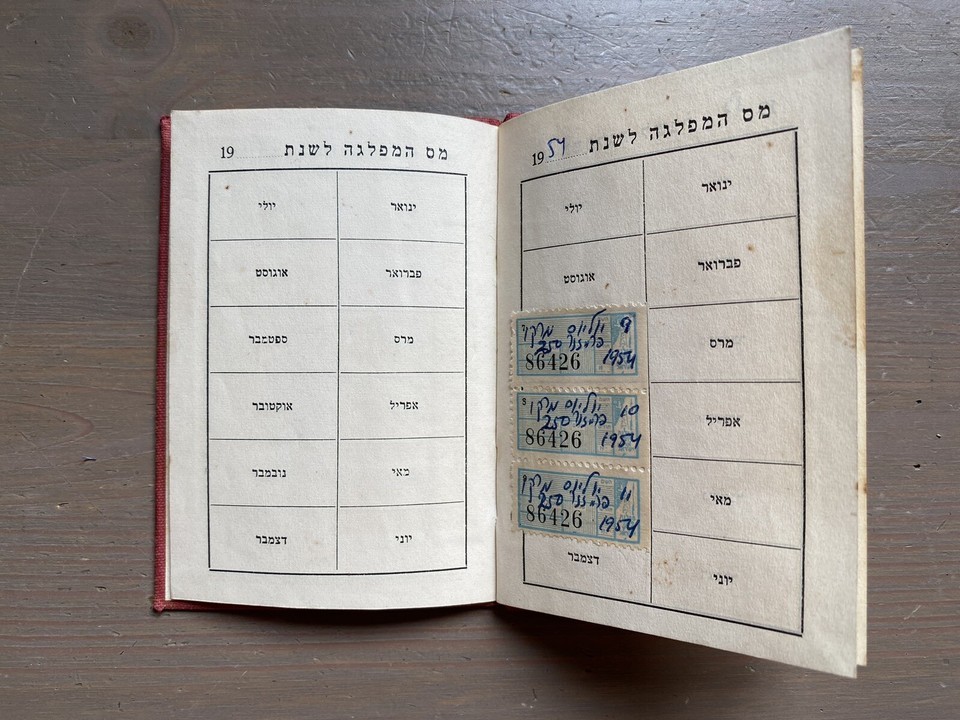 מס המפלגה לשנת 1954
ינואר יולי
פברואר אוגוסט
מרס
יוליוס 9
250
86426 1954
אפריל
יוליוס 10
250
86426 1954
מאי
יוליוס 11
250
86426 1954
יוני דצמבר
מס המפלגה לשנת 19
ינואר יולי
פברואר אוגוסט
מרס ספטמבר
אפריל אוקטובר
מאי נובמבר
יוני דצמבר